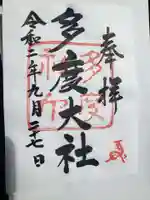 奉拝
多度大社
令和二年九月二十七日